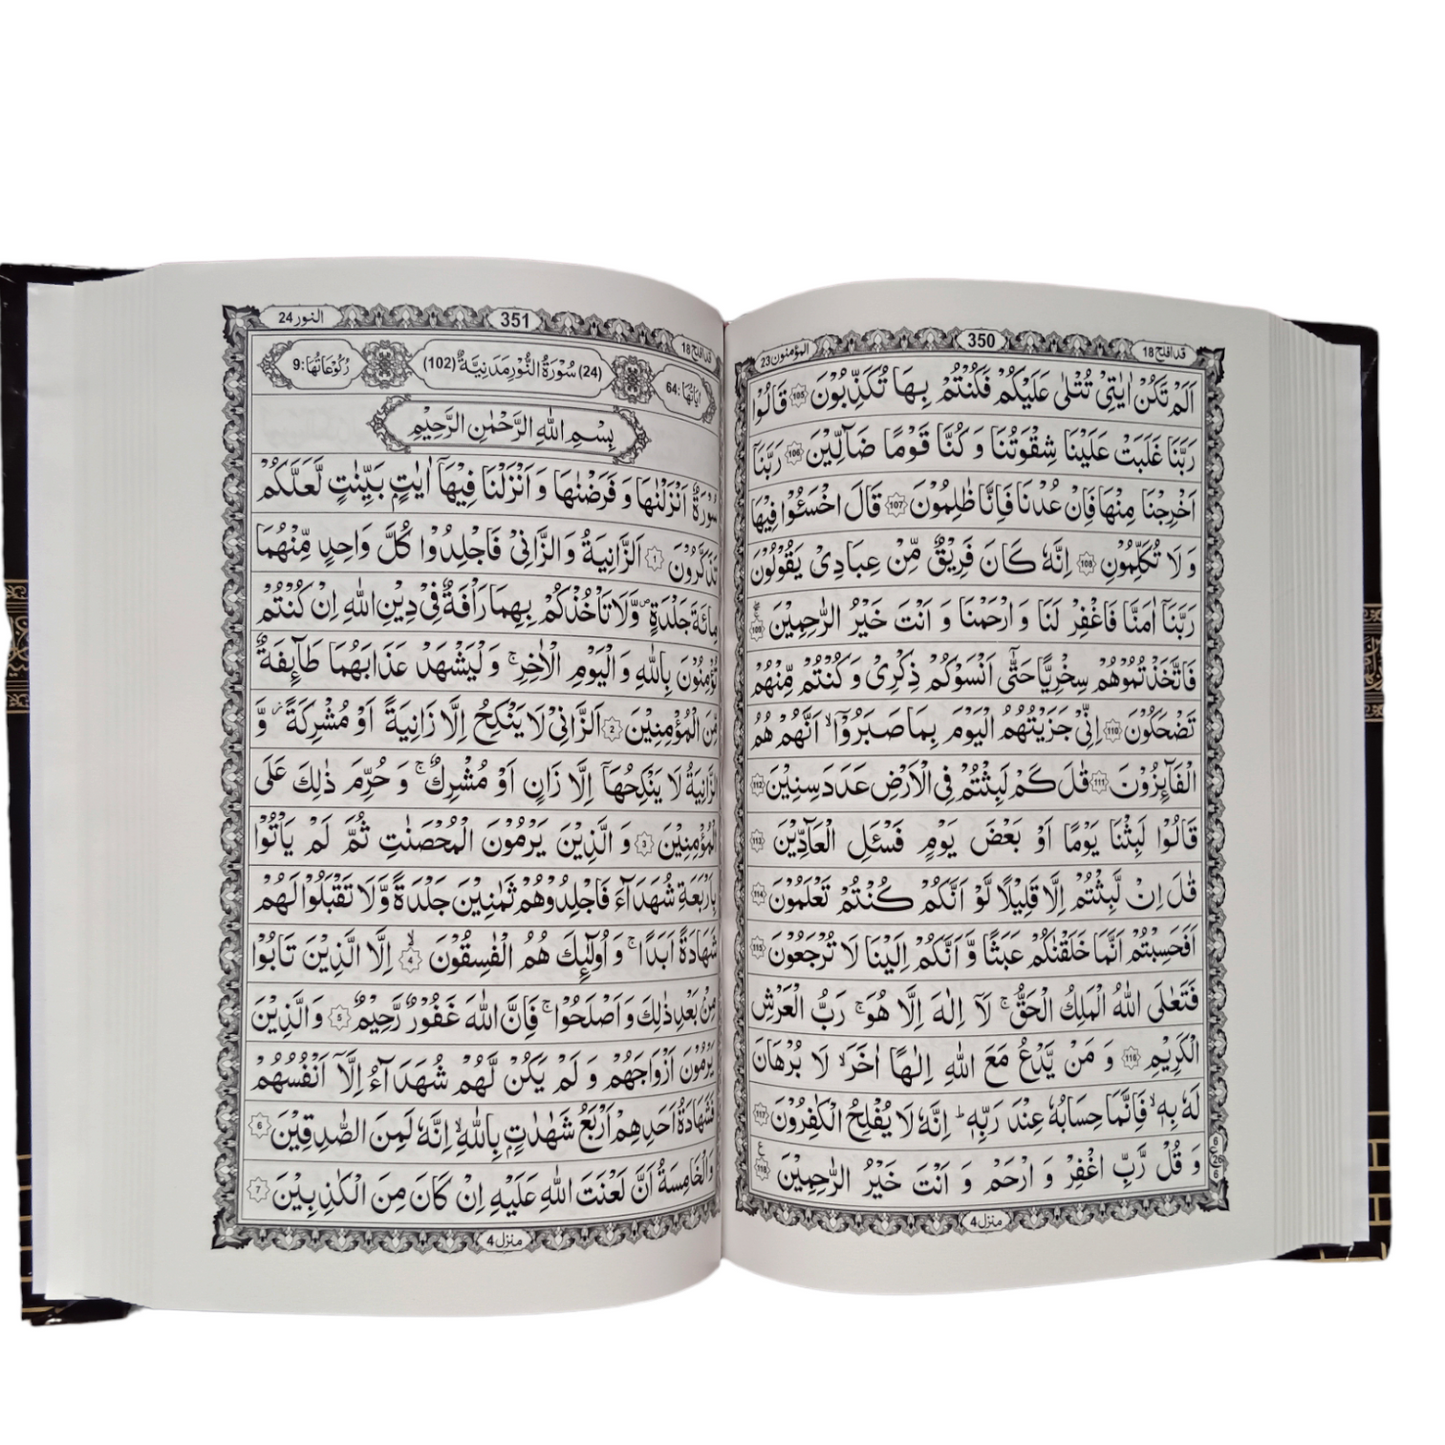 قدافلح 18
350
المؤمنون 23
اَلَمْ تَكُنْ اٰيٰتِيْ تُتْلٰى عَلَيْكُمْ فَكُنْتُمْ بِهَا تُكَذِّبُوْنَ 105 قَالُوْا
رَبَّنَا غَلَبَتْ عَلَيْنَا شِقْوَتُنَا وَ كُنَّا قَوْمًا ضَآلِّيْنَ 106 رَبَّنَا
اَخْرِجْنَا مِنْهَا فَاِنْ عُدْنَا فَاِنَّا ظٰلِمُوْنَ 107 قَالَ اخْسَئُوْا فِيْهَا
وَ لَا تُكَلِّمُوْنِ 108 اِنَّهٗ كَانَ فَرِيْقٌ مِّنْ عِبَادِيْ يَقُوْلُوْنَ
رَبَّنَآ اٰمَنَّا فَاغْفِرْ لَنَا وَ ارْحَمْنَا وَ اَنْتَ خَيْرُ الرّٰحِمِيْنَ 109
فَاتَّخَذْتُمُوْهُمْ سِخْرِيًّا حَتّٰٓى اَنْسَوْكُمْ ذِكْرِيْ وَ كُنْتُمْ مِّنْهُمْ
تَضْحَكُوْنَ 110 اِنِّيْ جَزَيْتُهُمُ الْيَوْمَ بِمَا صَبَرُوْٓاۙ اَنَّهُمْ هُمُ
الْفَآئِزُوْنَ 111 قٰلَ كَمْ لَبِثْتُمْ فِي الْاَرْضِ عَدَدَ سِنِيْنَ 112
قَالُوْا لَبِثْنَا يَوْمًا اَوْ بَعْضَ يَوْمٍ فَسْـَٔلِ الْعَآدِّيْنَ 113
قٰلَ اِنْ لَّبِثْتُمْ اِلَّا قَلِيْلًا لَّوْ اَنَّكُمْ كُنْتُمْ تَعْلَمُوْنَ 114
اَفَحَسِبْتُمْ اَنَّمَا خَلَقْنٰكُمْ عَبَثًا وَّ اَنَّكُمْ اِلَيْنَا لَا تُرْجَعُوْنَ 115
فَتَعٰلَى اللّٰهُ الْمَلِكُ الْحَقُّۚ لَآ اِلٰهَ اِلَّا هُوَۚ رَبُّ الْعَرْشِ
الْكَرِيْمِ 116 وَ مَنْ يَّدْعُ مَعَ اللّٰهِ اِلٰهًا اٰخَرَۙ لَا بُرْهَانَ
لَهٗ بِهٖۙ فَاِنَّمَا حِسَابُهٗ عِنْدَ رَبِّهٖؕ اِنَّهٗ لَا يُفْلِحُ الْكٰفِرُوْنَ 117
وَ قُلْ رَّبِّ اغْفِرْ وَ ارْحَمْ وَ اَنْتَ خَيْرُ الرّٰحِمِيْنَ 118
منزل 4
قدافلح 18
351
النور 24
اٰيَاتُهَا: 64
(24) سُوْرَةُ النُّوْرِ مَدَنِيَّةٌ (102)
رُكُوْعَاتُهَا: 9
بِسْمِ اللّٰهِ الرَّحْمٰنِ الرَّحِيْمِ
سُوْرَةٌ اَنْزَلْنٰهَا وَ فَرَضْنٰهَا وَ اَنْزَلْنَا فِيْهَآ اٰيٰتٍۭ بَيِّنٰتٍ لَّعَلَّكُمْ
تَذَكَّرُوْنَ 1 اَلزَّانِيَةُ وَ الزَّانِيْ فَاجْلِدُوْا كُلَّ وَاحِدٍ مِّنْهُمَا
مِائَةَ جَلْدَةٍ۪ وَّ لَا تَاْخُذْكُمْ بِهِمَا رَاْفَةٌ فِيْ دِيْنِ اللّٰهِ اِنْ كُنْتُمْ
تُؤْمِنُوْنَ بِاللّٰهِ وَ الْيَوْمِ الْاٰخِرِۚ وَ لْيَشْهَدْ عَذَابَهُمَا طَآئِفَةٌ
مِّنَ الْمُؤْمِنِيْنَ 2 اَلزَّانِيْ لَا يَنْكِحُ اِلَّا زَانِيَةً اَوْ مُشْرِكَةً٘ وَّ
الزَّانِيَةُ لَا يَنْكِحُهَآ اِلَّا زَانٍ اَوْ مُشْرِكٌۚ وَ حُرِّمَ ذٰلِكَ عَلَى
الْمُؤْمِنِيْنَ 3 وَ الَّذِيْنَ يَرْمُوْنَ الْمُحْصَنٰتِ ثُمَّ لَمْ يَاْتُوْا
بِاَرْبَعَةِ شُهَدَآءَ فَاجْلِدُوْهُمْ ثَمٰنِيْنَ جَلْدَةً وَّ لَا تَقْبَلُوْا لَهُمْ
شَهَادَةً اَبَدًاۚ وَ اُولٰٓئِكَ هُمُ الْفٰسِقُوْنَ 4 اِلَّا الَّذِيْنَ تَابُوْا
مِنْۢ بَعْدِ ذٰلِكَ وَ اَصْلَحُوْاۚ فَاِنَّ اللّٰهَ غَفُوْرٌ رَّحِيْمٌ 5 وَ الَّذِيْنَ
يَرْمُوْنَ اَزْوَاجَهُمْ وَ لَمْ يَكُنْ لَّهُمْ شُهَدَآءُ اِلَّآ اَنْفُسُهُمْ
فَشَهَادَةُ اَحَدِهِمْ اَرْبَعُ شَهٰدٰتٍۭ بِاللّٰهِۙ اِنَّهٗ لَمِنَ الصّٰدِقِيْنَ 6
وَ الْخَامِسَةُ اَنَّ لَعْنَتَ اللّٰهِ عَلَيْهِ اِنْ كَانَ مِنَ الْكٰذِبِيْنَ 7
منزل 4